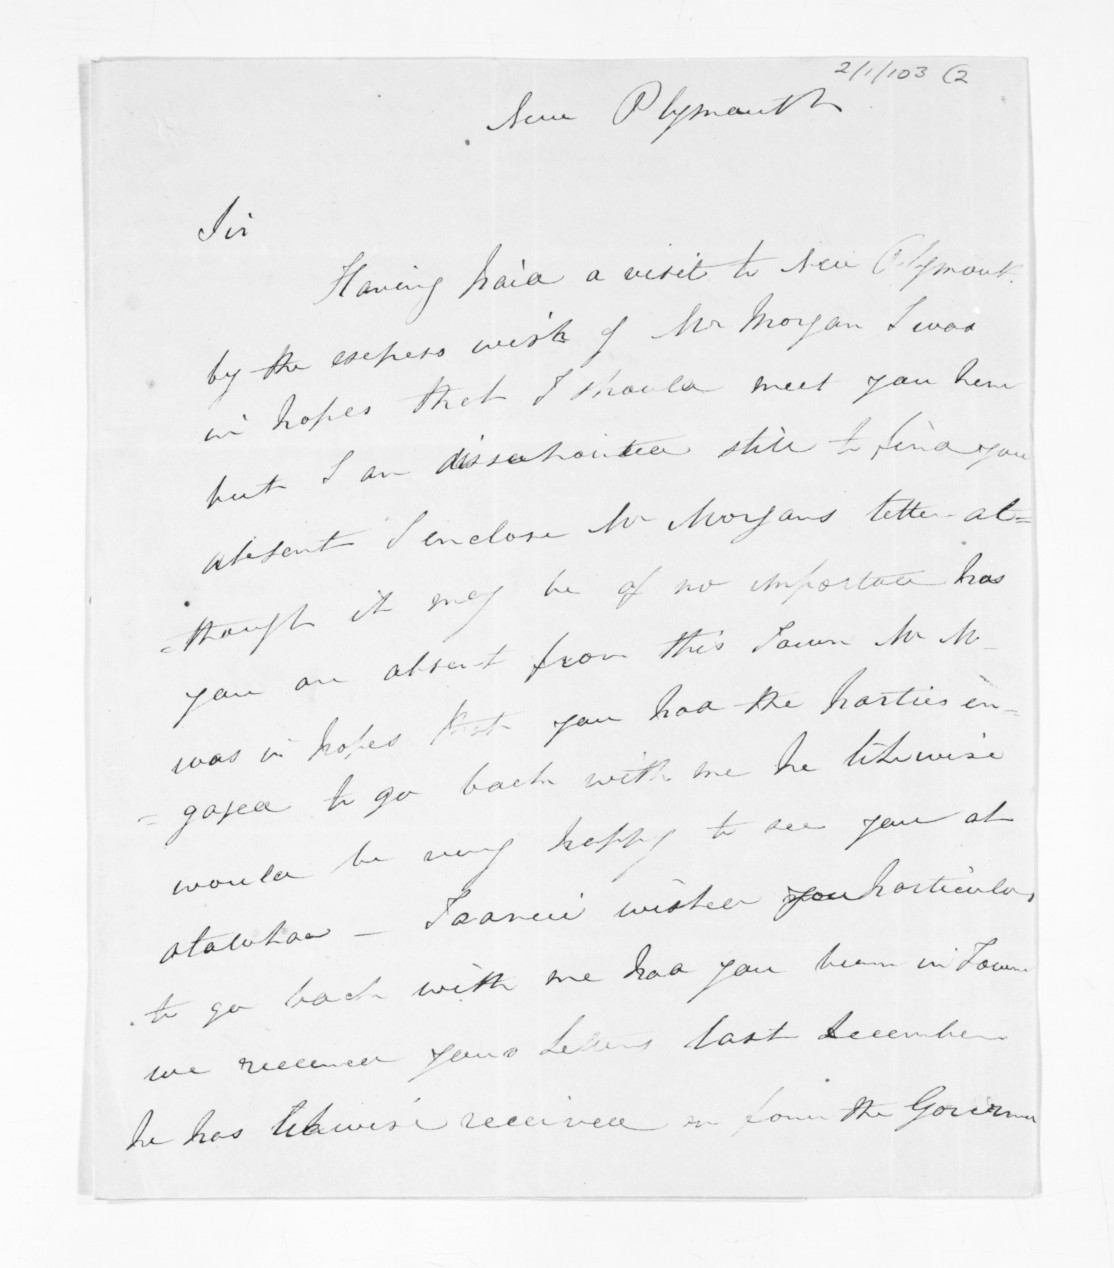 2/1/103 (2
New Plymouth
Sir
Having paid a visit to New Plymouth
by the express wish of Mr Morgan I was
in hopes that I should meet you here
but I am dissapointed still to find you
absent I enclose Mr Morgans letter al=
=though it may be of no importace has
you are absent from this Town Mr M-
was in hopes that you had the parties en=
=gaged to go back with me he likewise
would be very happy to see you at
otawhao - wished you particular
to go back with me had you been in Town
we received yours Letters last December
he has likewise received on from the Governor